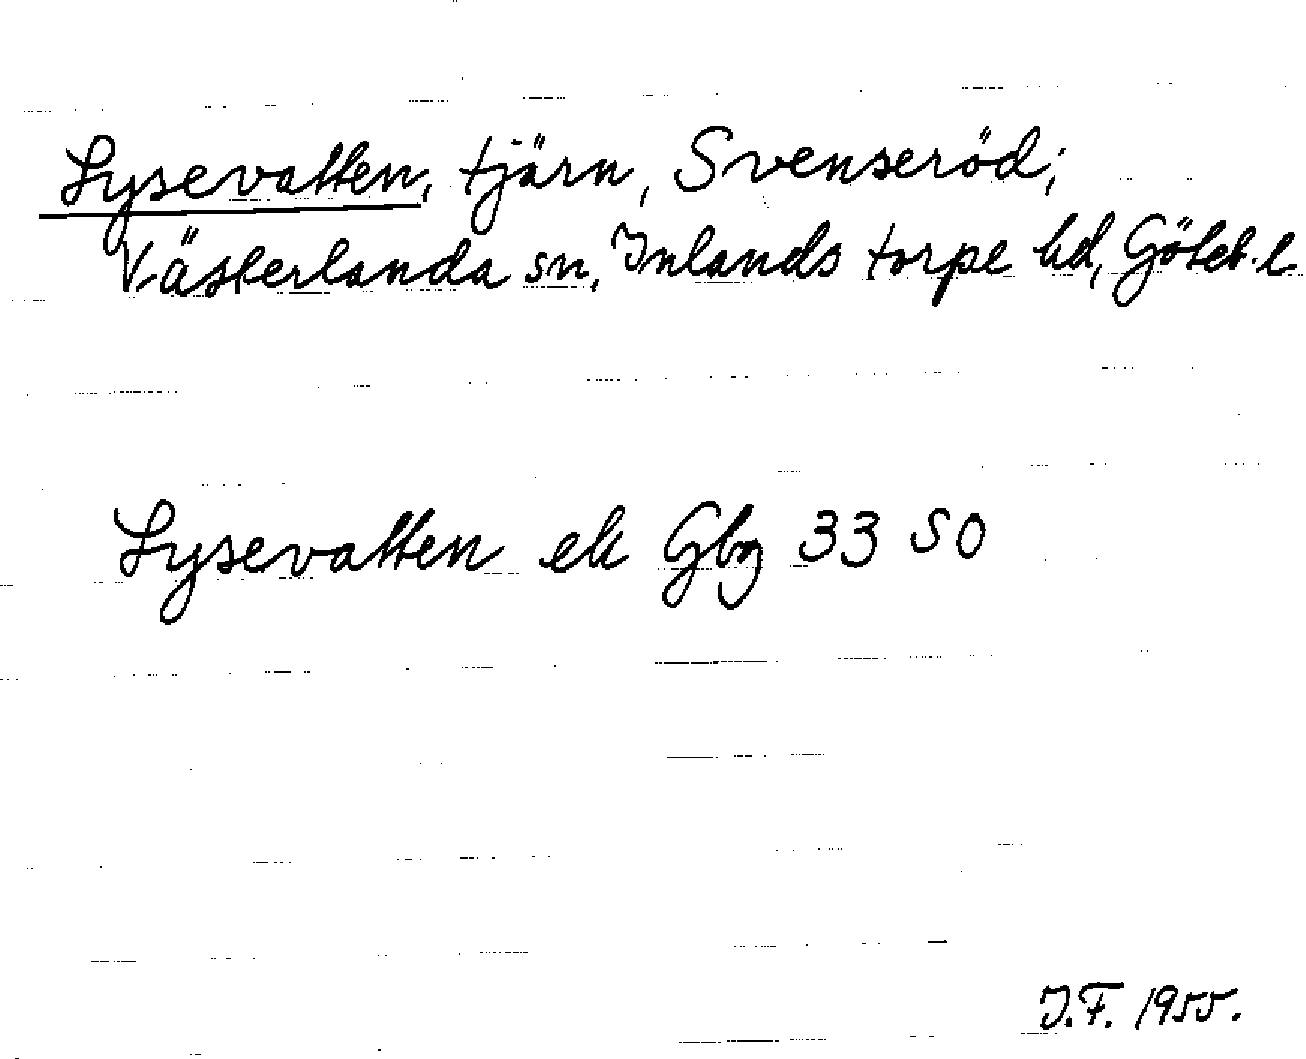 Lysevatten, tjärn, Svenseröd;
Västerlanda sn, Inlands torpe hd, Göteb. l
Lysevatten ek Gbg 33 SO
J.F. 1955.